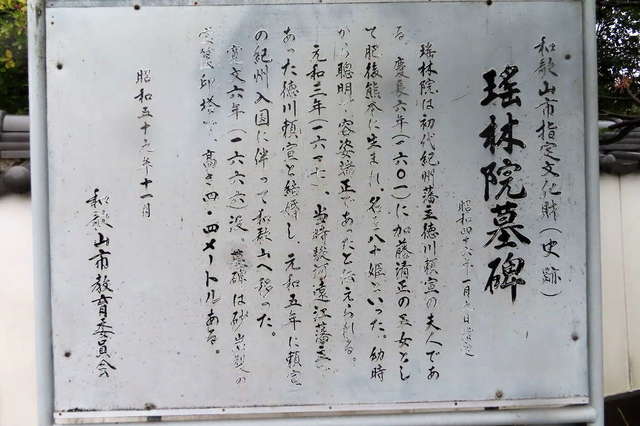 和歌山市指定文化財（史跡）
瑶林院墓碑
昭和四十六年一月 日指定
瑶林院は初代紀州藩主徳川頼宣の夫人であ
る。慶長六年（一六〇一）に加藤清正の五女とし
て肥後熊本に生まれ、名を八十姫といった。幼時
から聡明で容姿端正であったと伝えられる。
元和三年（一六一七）、当時駿河遠江藩主で
あった徳川頼宣と結婚し、元和五年に頼宣
の紀州入国に伴って和歌山へ移った。
寛文六年（一六六六）没、墓碑は砂岩製の
宝篋印塔で、高さ四・四メートルある。
昭和五十 年十一月
和歌山市教育委員会